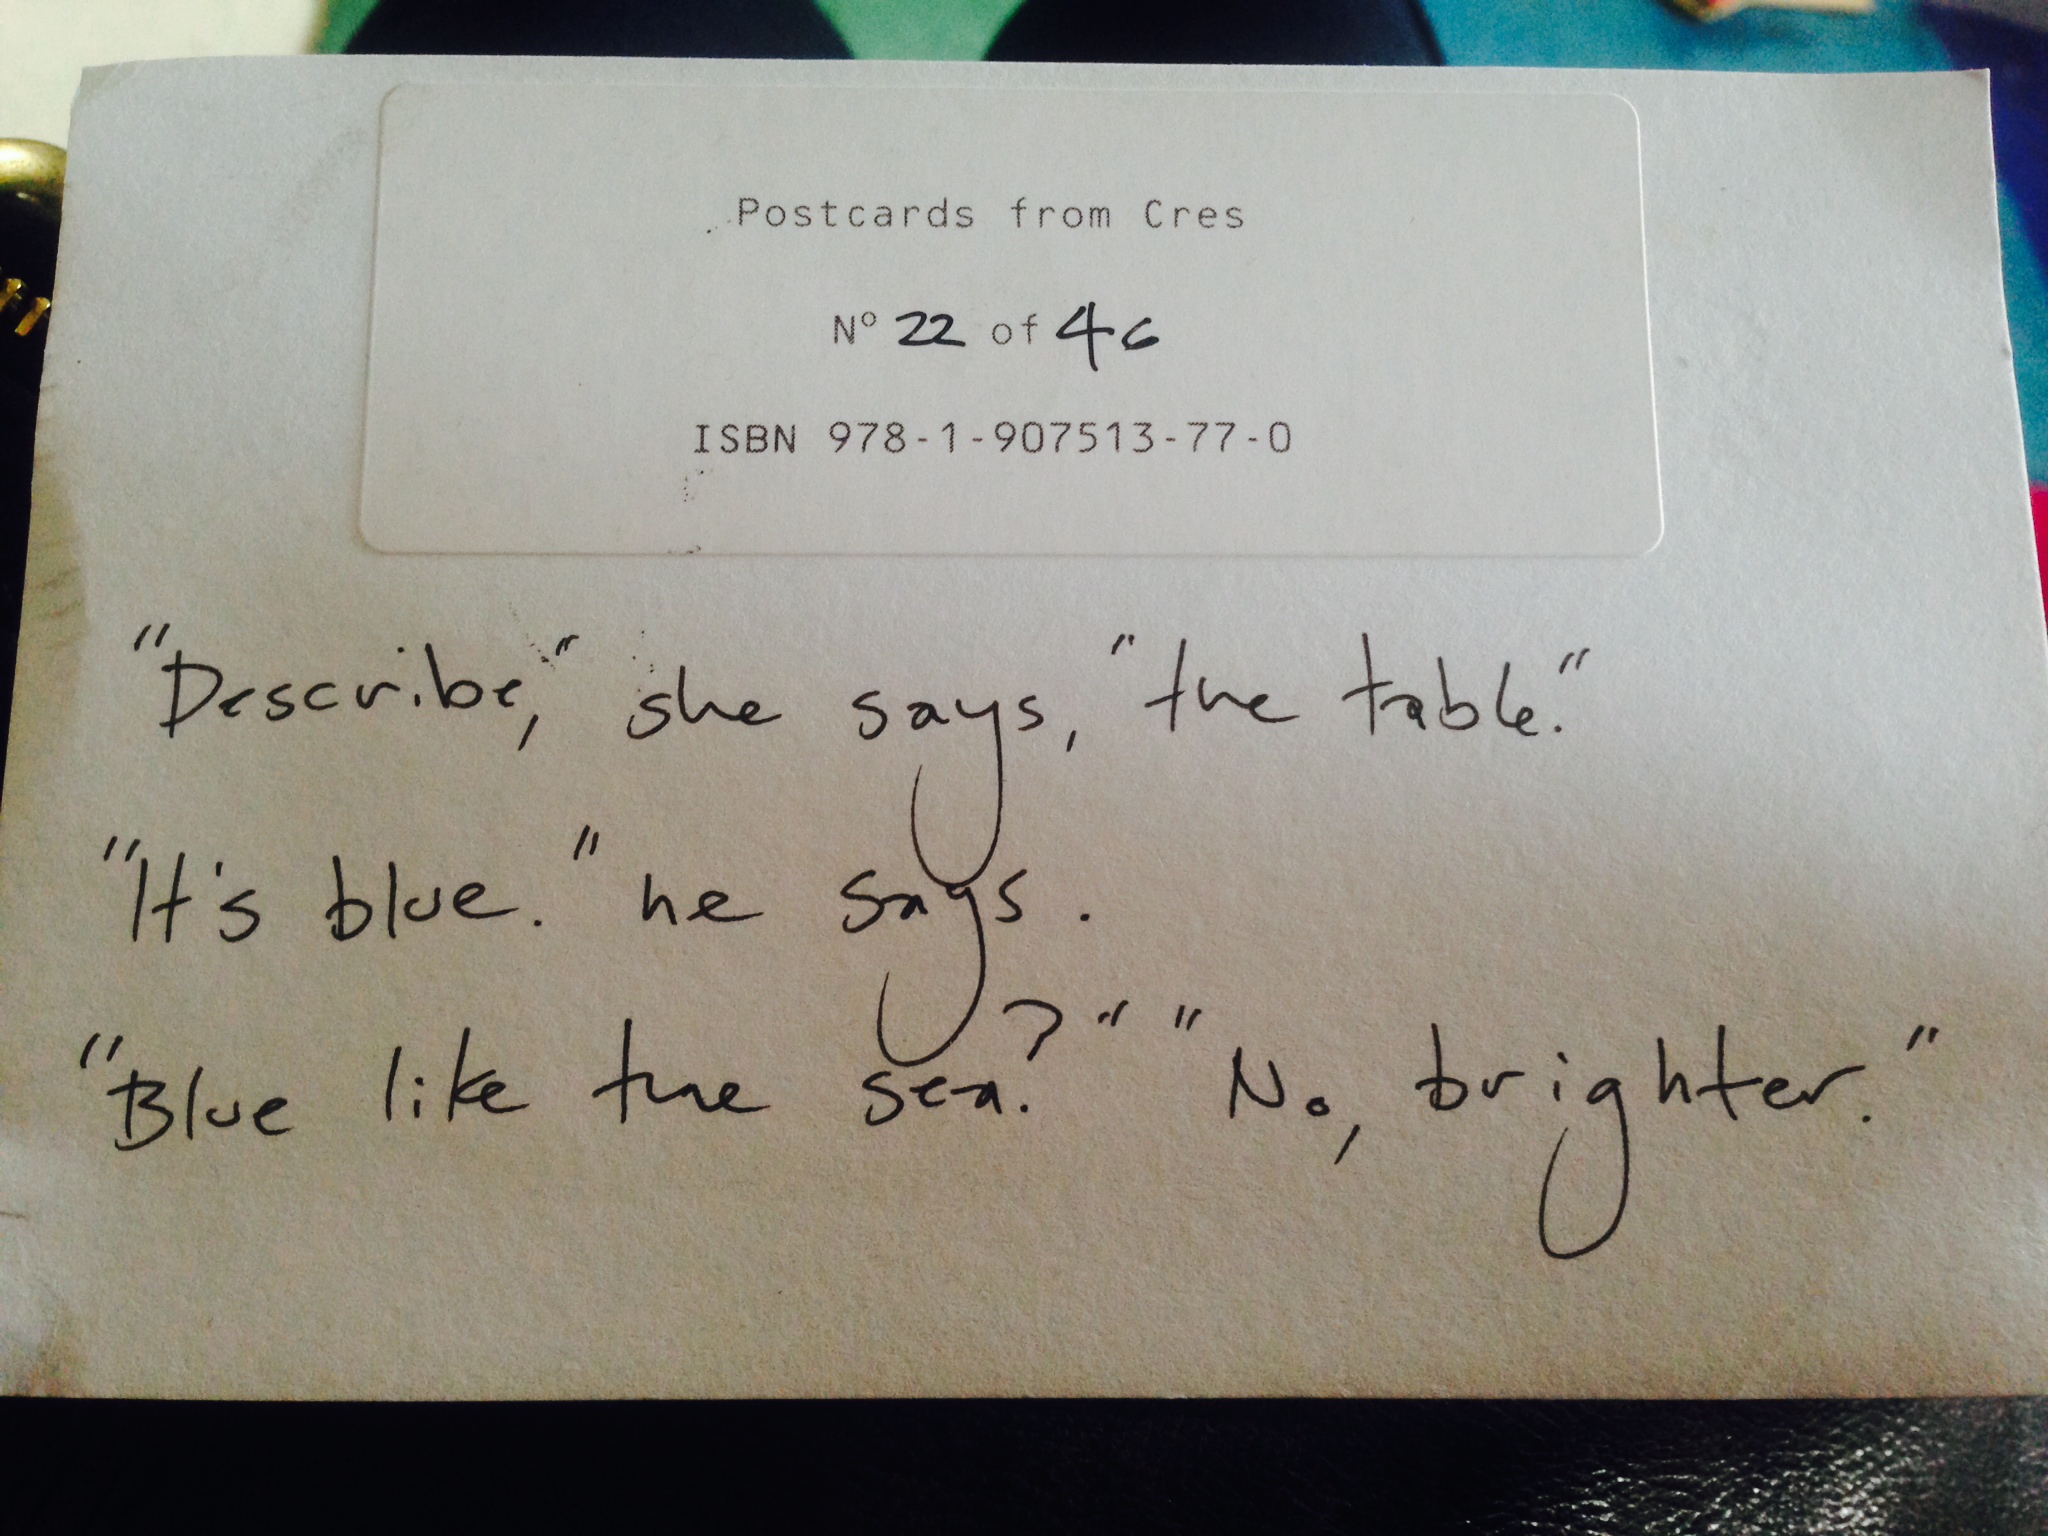 Postcards from Cres
Nº 22 of 46
ISBN 978-1-907513-77-0
"Describe," she says, "the table."
"It's blue." he says.
"Blue like the sea?" "No, brighter."